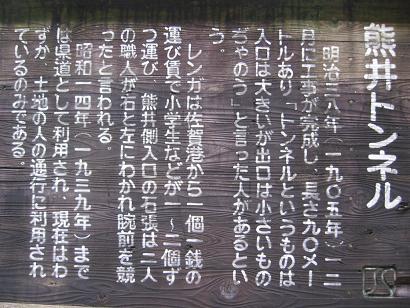 熊井トンネル
明治三八年(一九〇五年)一二
月に工事が完成し、長さ九〇メー
トルあり「トンネルというものは
入口は大きいが出口は小さいもの
ぢゃのう」と言った人があるとい
う。
レンガは佐賀港から一個一銭の
運び賃で小学生などが一〜二個ず
つ運び、熊井側入口の石張は二人
の職人が右と左にわかれ腕前を競
ったと言われる。
昭和一四年(一九三九年)まで
は県道として利用され、現在はわ
ずか、土地の人の通行に利用され
ているのみである。